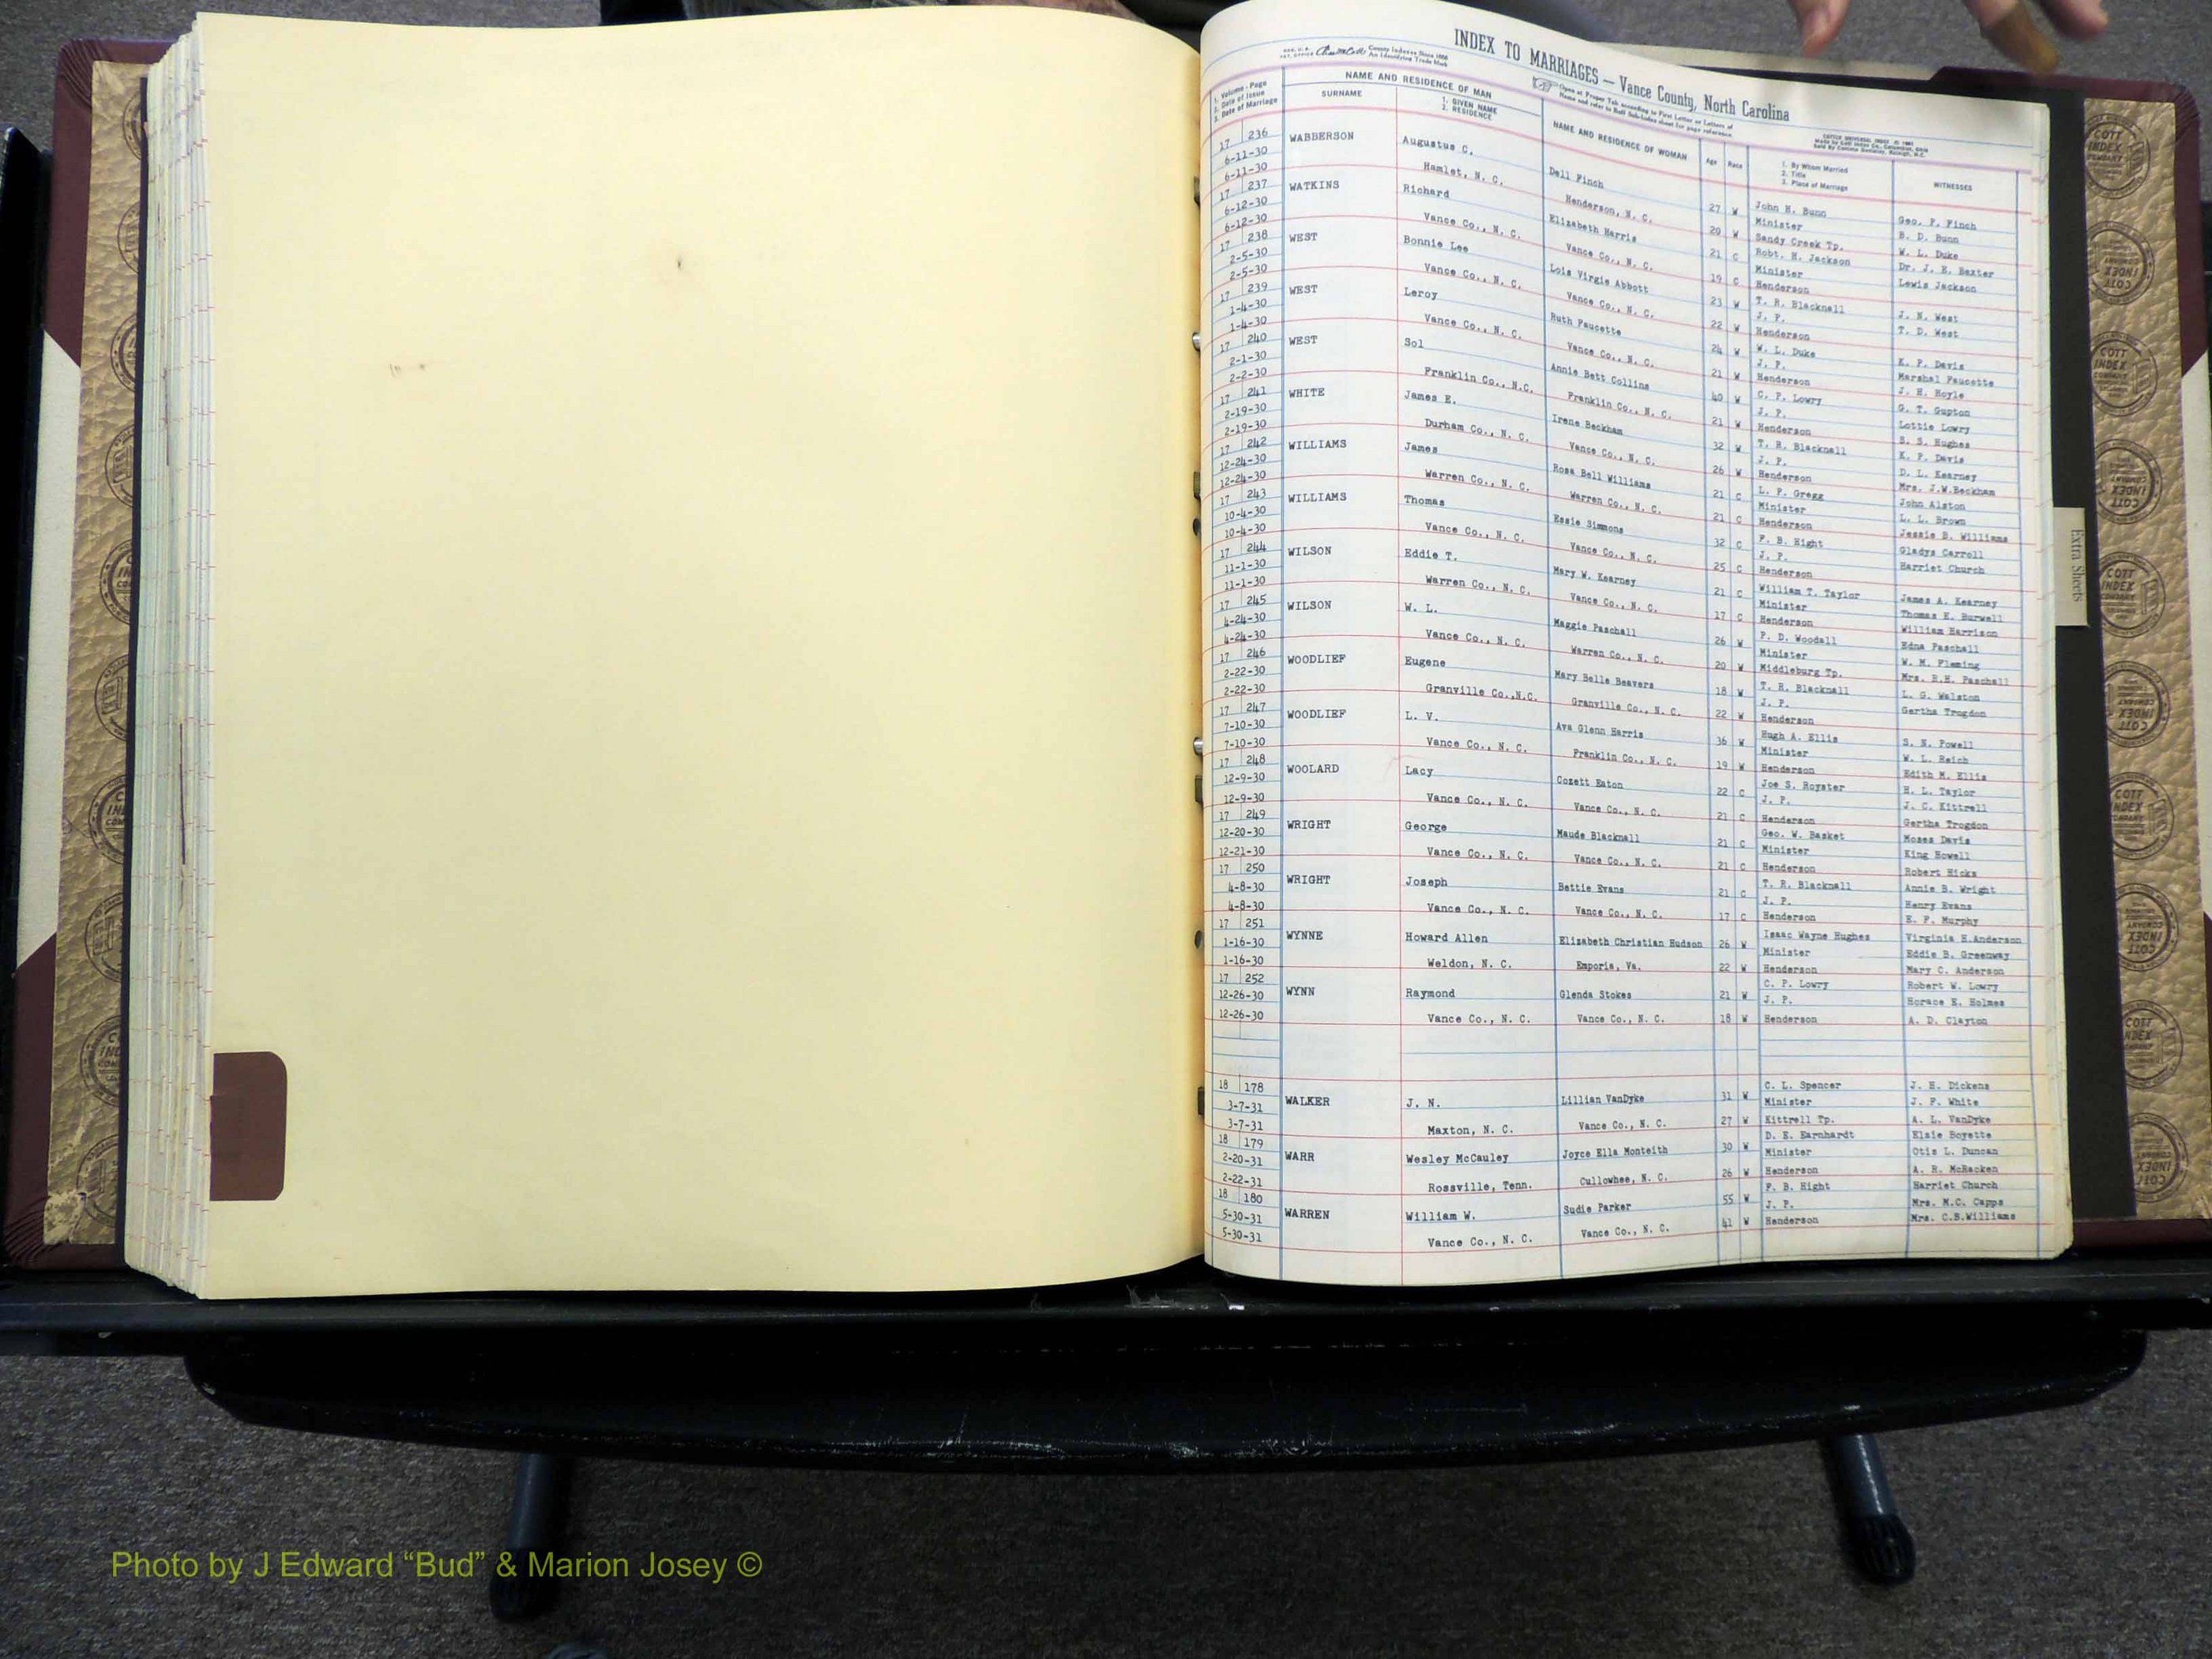 INDEX TO MARRIAGES — Vance County, North Carolina
REG. U.S. PAT. OFFICE County Indexes Since 1888 An Identifying Trade Mark
Open at Proper Tab according to First Letter or Letters of
Name and refer to Buff Sub-Index sheet for page reference.
1. Volume - Page
2. Date of Issue
3. Date of Marriage
NAME AND RESIDENCE OF MAN
SURNAME
1. GIVEN NAME
2. RESIDENCE
NAME AND RESIDENCE OF WOMAN
Age
Race
1. By Whom Married
2. Title
3. Place of Marriage
WITNESSES
17 236 WABBERSON Augustus C. Dell Finch 27 W John H. Bunn Geo. P. Finch
6-11-30 Hamlet, N. C. Henderson, N. C. 20 W Minister B. D. Bunn
6-11-30 Sandy Creek Tp. W. L. Duke
17 237 WATKINS Richard Elizabeth Harris 21 C Robt. H. Jackson Dr. J. E. Baxter
6-12-30 Vance Co., N. C. Vance Co., N. C. 19 C Minister Lewis Jackson
6-12-30 Henderson
17 238 WEST Bonnie Lee Lois Virgie Abbott 23 W T. R. Blacknall J. N. West
2-5-30 Vance Co., N. C. Vance Co., N. C. 22 W J. P. T. D. West
2-5-30 Henderson
17 239 WEST Leroy Ruth Faucette 24 W W. L. Duke K. P. Davis
1-4-30 Vance Co., N. C. Vance Co., N. C. 21 W J. P. Marshal Faucette
1-4-30 Henderson J. H. Hoyle
17 240 WEST Sol Annie Bett Collins 40 W C. P. Lowry G. T. Gupton
2-1-30 Franklin Co., N.C. Franklin Co., N. C. 21 W J. P. Lottie Lowry
2-2-30 Henderson S. S. Hughes
17 241 WHITE James E. Irene Beckham 32 W T. R. Blacknall K. P. Davis
2-19-30 Durham Co., N. C. Vance Co., N. C. 26 W J. P. D. L. Kearney
2-19-30 Henderson Mrs. J.W.Beckham
17 242 WILLIAMS James Rosa Bell Williams 21 C L. P. Gregg John Alston
12-24-30 Warren Co., N. C. Warren Co., N. C. 21 C Minister L. L. Brown
12-24-30 Henderson Jessie B. Williams
17 243 WILLIAMS Thomas Essie Simmons 32 C F. B. Hight Gladys Carroll
10-4-30 Vance Co., N. C. Vance Co., N. C. 25 C J. P. Harriet Church
10-4-30 Henderson
17 244 WILSON Eddie T. Mary W. Kearney 21 C William T. Taylor James A. Kearney
11-1-30 Warren Co., N. C. Vance Co., N. C. 17 C Minister Thomas E. Burwell
11-1-30 Henderson William Harrison
17 245 WILSON W. L. Maggie Paschall 26 W P. D. Woodall Edna Paschall
4-24-30 Vance Co., N. C. Warren Co., N. C. 20 W Minister W. M. Fleming
4-24-30 Middleburg Tp. Mrs. R.H. Paschall
17 246 WOODLIEF Eugene Mary Belle Beavers 18 W T. R. Blacknall L. G. Walston
2-22-30 Granville Co.,N.C. Granville Co., N. C. 22 W J. P. Gertha Trogdon
2-22-30 Henderson
17 247 WOODLIEF L. V. Ava Glenn Harris 36 W Hugh A. Ellis S. N. Powell
7-10-30 Vance Co., N. C. Franklin Co., N. C. 19 W Minister W. L. Reich
7-10-30 Henderson Edith M. Ellis
17 248 WOOLARD Lacy Cozett Eaton 22 C Joe S. Royster H. L. Taylor
12-9-30 Vance Co., N. C. Vance Co., N. C. 21 C J. P. J. C. Kittrell
12-9-30 Henderson Gertha Trogdon
17 249 WRIGHT George Maude Blacknall 21 C Geo. W. Basket Moses Davis
12-20-30 Vance Co., N. C. Vance Co., N. C. 21 C Minister King Howell
12-21-30 Henderson Robert Hicks
17 250 WRIGHT Joseph Bettie Evans 21 C T. R. Blacknall Annie B. Wright
4-8-30 Vance Co., N. C. Vance Co., N. C. 17 C J. P. Henry Evans
4-8-30 Henderson E. F. Murphy
17 251 WYNNE Howard Allen Elizabeth Christian Hudson 26 W Isaac Wayne Hughes Virginia H.Anderson
1-16-30 Weldon, N. C. Emporia, Va. 22 W Minister Eddie B. Greenway
1-16-30 Henderson Mary C. Anderson
17 252 WYNN Raymond Glenda Stokes 21 W C. P. Lowry Robert W. Lowry
12-26-30 Vance Co., N. C. Vance Co., N. C. 18 W J. P. Horace E. Holmes
12-26-30 Henderson A. D. Clayton
18 178 WALKER J. N. Lillian VanDyke 31 W C. L. Spencer J. H. Dickens
3-7-31 Maxton, N. C. Vance Co., N. C. 27 W Minister J. P. White
3-7-31 Kittrell Tp. A. L. VanDyke
18 179 WARR Wesley McCauley Joyce Ella Monteith 30 W D. E. Earnhardt Elsie Boyette
2-20-31 Rossville, Tenn. Cullowhee, N. C. 26 W Minister Otis L. Duncan
2-22-31 Henderson A. R. McRacken
18 180 WARREN William W. Sudie Parker 55 W F. B. Hight Harriet Church
5-30-31 Vance Co., N. C. Vance Co., N. C. 41 W J. P. Mrs. M.C. Capps
5-30-31 Henderson Mrs. C.B.Williams
Extra Sheets
COTT INDEX COMPANY
Photo by J Edward “Bud” & Marion Josey ©